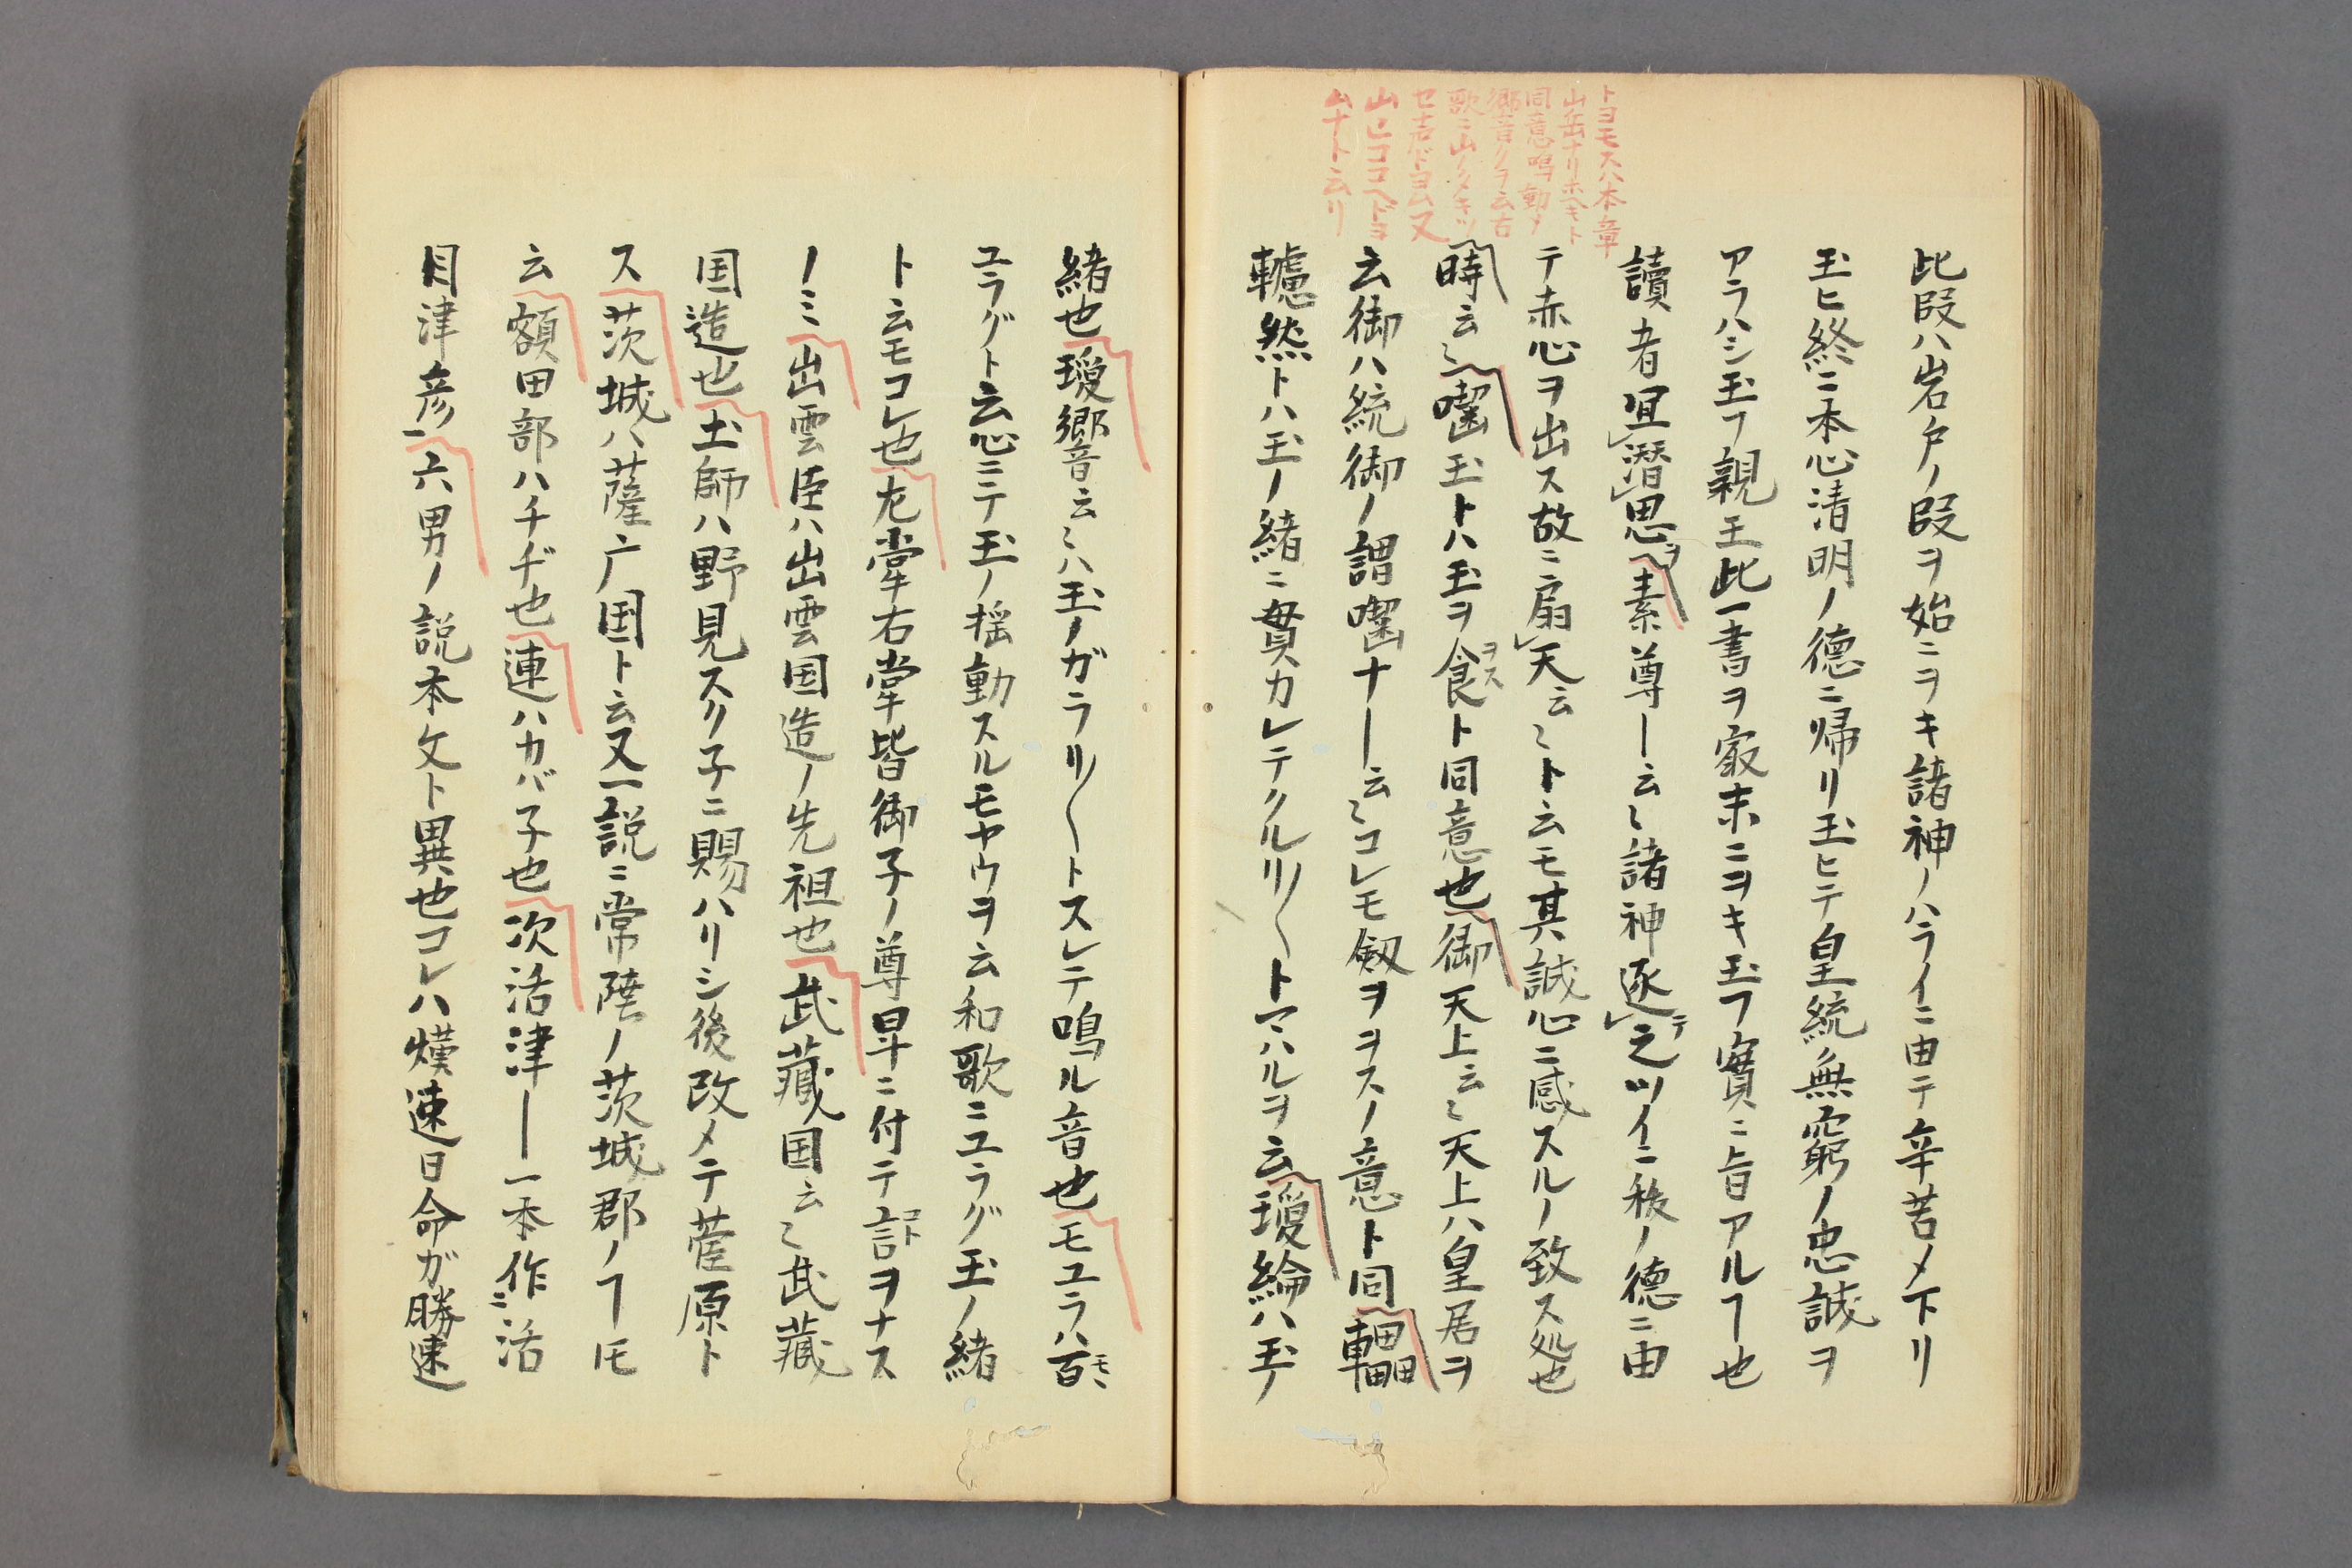 トヨモスハ本章
山岳ナリホヘキト
同意鳴動ノ
郷音クヲ云古
歌ニ山ノタキツ
セ声ドヨム又
山ヒココヘドヨ
ムナト云リ
此段ハ岩戸ノ段ヲ始ニヲキ諸神ノハライニ由テ辛苦メ下リ
玉ヒ終ニ本心清明ノ德ニ帰リ玉ヒテ皇統無窮ノ忠誠ヲ
アラハシ玉フ親王此一書ヲ最末ニヲキ玉フ實ニ旨アルヿ也
讀者冝潜思ヲ素尊―云〻諸神逐之テツイニ秡ノ德ニ由
テ赤心ヲ出ス故ニ扇天云〻ト云モ其誠心ニ感スルノ致ス処也
時云〻囓玉トハ玉ヲ食ヲスト同意也御天上云〻天上ハ皇居ヲ
云御ハ統御ノ謂囓ナ―云〻コレモ劔ヲヲスノ意ト同轠
轤然トハ玉ノ緒ニ貫カレテクルリ〱トマハルヲ云瓊綸ハ玉ノ
緒也瓊響云〻ハ玉ノガラリ〱トスレテ鳴ル音也モユラハ百モヽ
ユラグト云心ニテ玉ノ揺動スルモヤウヲ云和歌ニユラグ玉ノ緒
ト云モコレ也左掌右掌皆御子ノ尊卑ニ付テ言コトヲナス
ノミ出雲臣ハ出雲国造ノ先祖也武藏国云〻武藏
国造也土師ハ野見スク子ニ賜ハリシ後改メテ菅原ト
ス茨城ハ薩广国ト云又一説ニ常陸ノ茨城郡ノヿトモ
云額田部ハチヂ也連ハカバ子也次活津―一本作ニ活
目津彦一六男ノ説本文ト異也コレハ熯速日命ガ勝速